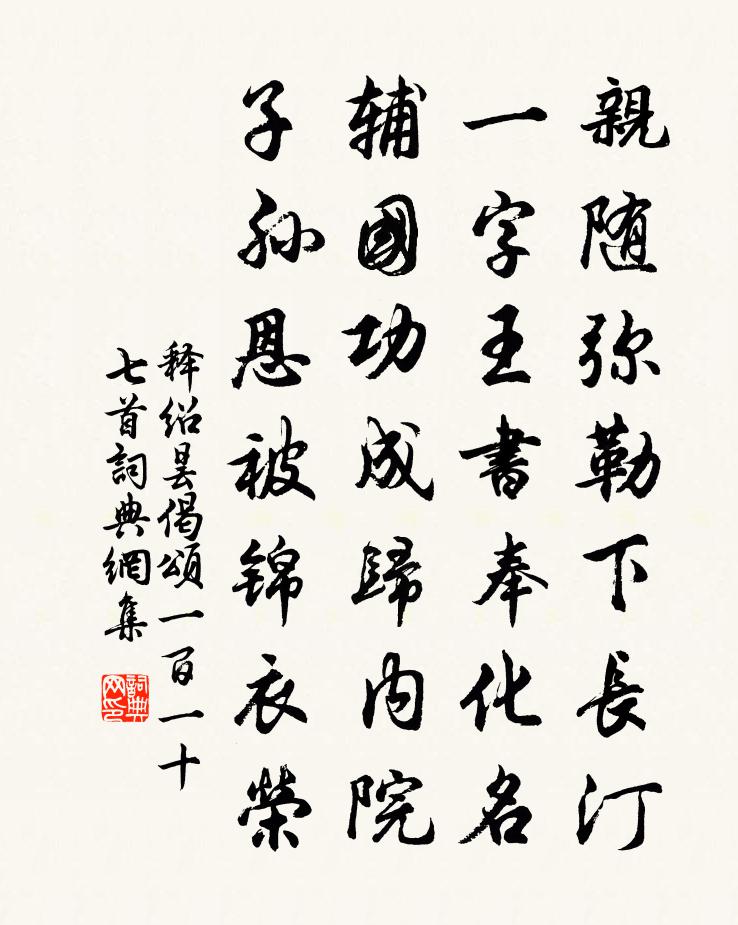 親随弥勒下長汀
一字王書奉化名
輔國功成歸内院
子孙恩被锦衣榮
释绍昙偈頌一百一十
七首詞典網集
詞典网印